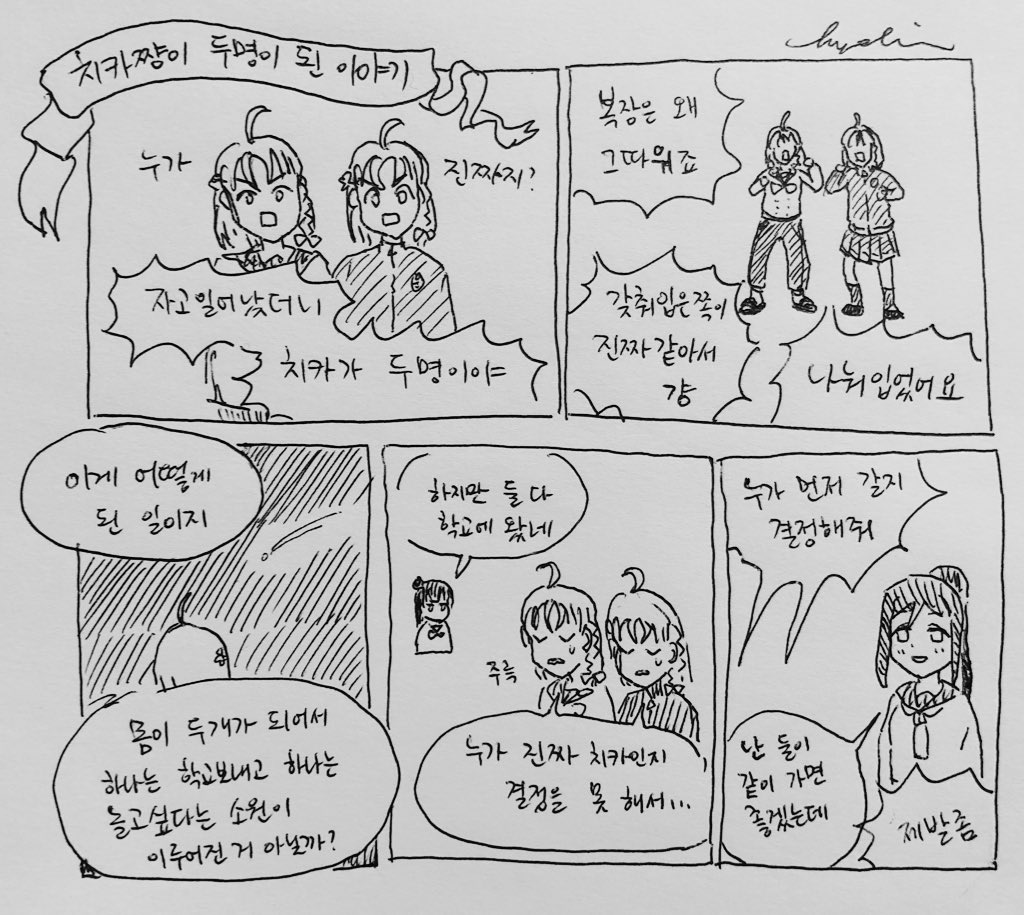 치카쨩이 두명이 된 이야기
누가
진짜지?
자고일어났더니
치카가 두명이야
복장은 왜
그따위죠
갖춰입은쪽이
진짜같아서
걍
나눠입었어요
이게 어떻게
된 일이지
몸이 두개가 되어서
하나는 학교보내고 하나는
놀고싶다는 소원이
이루어진거 아닐까?
하지만 둘 다
학교에 왔네
주륵
누가 진짜 치카인지
결정을 못 해서...
누가 먼저 갈지
결정해줘
난 둘이
같이 가면
좋겠는데
제발좀